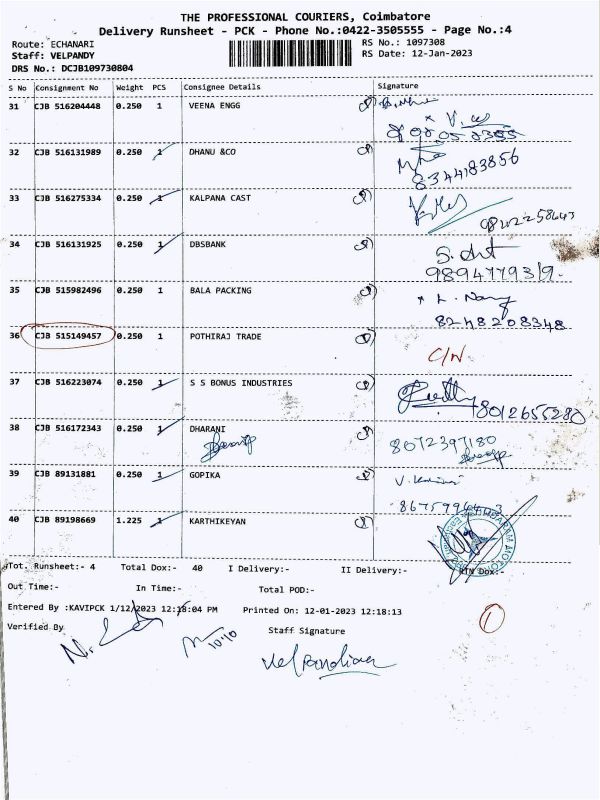 THE PROFESSIONAL COURIERS, Coimbatore
Delivery Runsheet - PCK - Phone No.:0422-3505555 - Page No.:4
Route: ECHANARI RS No.: 1097308
Staff: VELPANDY RS Date: 12-Jan-2023
DRS No.: DCJB109730804
S No Consignment No Weight PCS Consignee Details Signature
31 CJB 516204448 0.250 1 VEENA ENGG
32 CJB 516131989 0.250 1 DHANU &CO
8344183856
33 CJB 516275334 0.250 1 KALPANA CAST
34 CJB 516131925 0.250 1 DBSBANK
9894779319.
35 CJB 515982496 0.250 1 BALA PACKING
8248208348
36 CJB 515149457 0.250 1 POTHIRAJ TRADE C/N
37 CJB 516223074 0.250 1 S S BONUS INDUSTRIES
8012655280
38 CJB 516172343 0.250 1 DHARANI
8072397180
39 CJB 89131881 0.250 1 GOPIKA
40 CJB 89198669 1.225 1 KARTHIKEYAN
Tot. Runsheet:- 4 Total Dox:- 40 I Delivery:- II Delivery:- RTN Dox:-
Out Time:- In Time:- Total POD:-
Entered By :KAVIPCK 1/12/2023 12:18:04 PM Printed On: 12-01-2023 12:18:13
1
Verified By Staff Signature
10:10
Velpandian